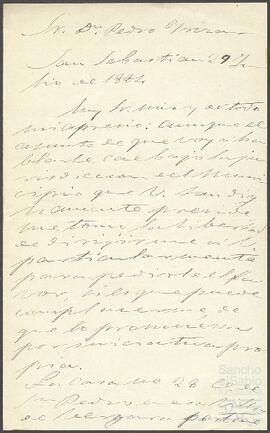 Sr. Dn. Pedro
San Sebastian 29 Ju-
lio de 188
Muy Sr. mio y de todo
mi aprecio: aunque el
asunto de que voy a ha
blarle, cae bajo la ju
risdiccion del Muni
cipio que V. tan dig
namente preside
me tomo la libertad
de dirigirme a V.
particularmente
para pedirle el fa
vor, si es que puede
complacerme, de
que lo promueva
por iniciativa pro
pia.
La Casa No 28 C. de
Sn Pedro en esa Villa
de Vergara
Sancho